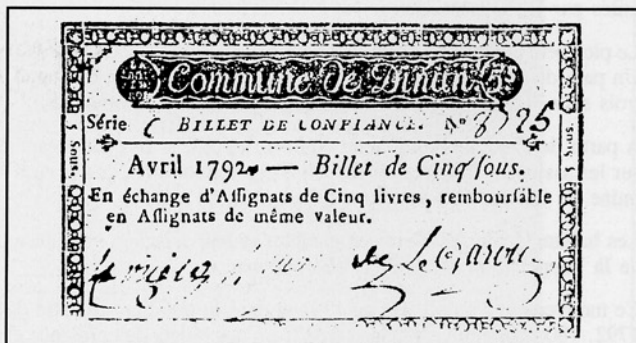 Commune de Dinan 5ˢ
Série C BILLET DE CONFIANCE. Nº 8725
Avril 1792. — Billet de Cinq ſous.
En échange d'Aſſignats de Cinq livres, rembourſable
en Aſſignats de même valeur.
5 Sous.
5 Sous.